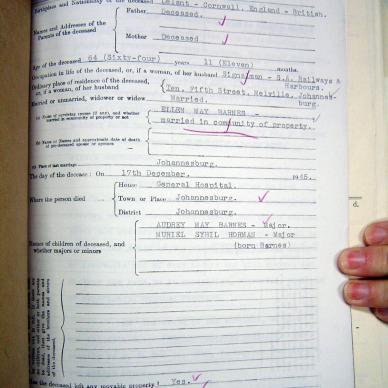 Birthplace and Nationality of the deceased Lelant - Cornwall, England - British.
Names and Addresses of the Parents of the deceased
Father Deceased.
Mother Deceased
Age of the deceased 64 (Sixty-four) years 11 (Eleven) months.
Occupation in life of the deceased, or, if a woman, of her husband Signalman - S.A. Railways & Harbours.
Ordinary place of residence of the deceased, or, if a woman, of her husband Ten, Fifth Street, Melville, Johannesburg.
Married or unmarried, widower or widow Married.
(a) Name of surviving spouse (if any), and whether married in community of property or not
ELLEN MAY BARNES -
married in community of property.
(b) Name or Names and approximate date of death of pre-deceased spouse or spouses
(c) Place of last marriage Johannesburg.
The day of the decease: On 17th December, 1945.
Where the person died
House General Hospital.
Town or Place Johannesburg.
District Johannesburg.
Names of children of deceased, and whether majors or minors
AUDREY MAY BARNES - Major.
MURIEL SYBIL HORMAN - Major
(born Barnes)
d.
Has the deceased left any movable property? Yes.